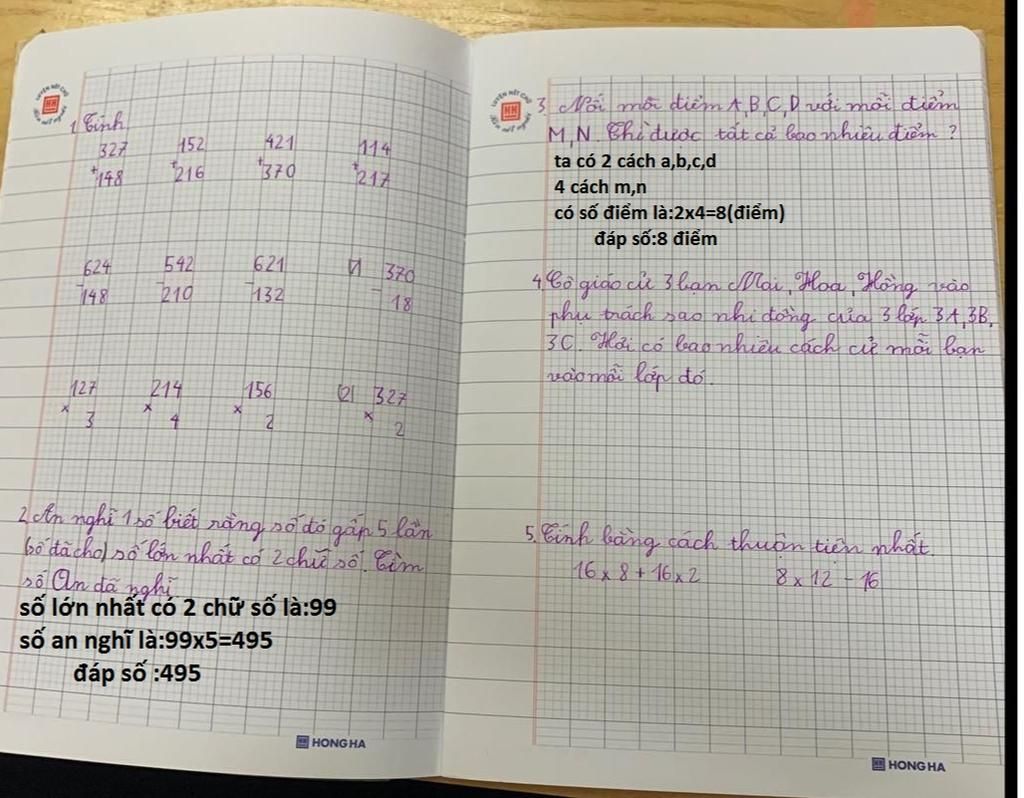 LUYỆN NÉT CHỮ
HH
RÈN NẾT NGƯỜI
1. Tính
327 152 421 114
+148 +216 +370 +217
624 542 621 370
-148 -210 -132 18
127 214 156 (2) 327
× 3 × 4 × 2 × 2
2. An nghĩ 1 số biết rằng số đó gấp 5 lần
(số đã cho) số lớn nhất có 2 chữ số. Tìm
số An đã nghĩ
số lớn nhất có 2 chữ số là:99
số an nghĩ là:99x5=495
đáp số :495
HONG HA
LUYỆN NÉT CHỮ
HH
RÈN NẾT NGƯỜI
3. Nối mỗi điểm A,B,C,D với mỗi điểm
M,N. Thì được tất cả bao nhiêu điểm ?
ta có 2 cách a,b,c,d
4 cách m,n
có số điểm là:2x4=8(điểm)
đáp số:8 điểm
4. Cô giáo cử 3 bạn Mai, Hoa, Hồng vào
phụ trách sao nhi đồng của 3 lớp 3A, 3B,
3C. Hỏi có bao nhiêu cách cử mỗi bạn
vào mỗi lớp đó.
5. Tính bằng cách thuận tiện nhất.
16 × 8 + 16 × 2 8 × 12 - 16
HONG HA